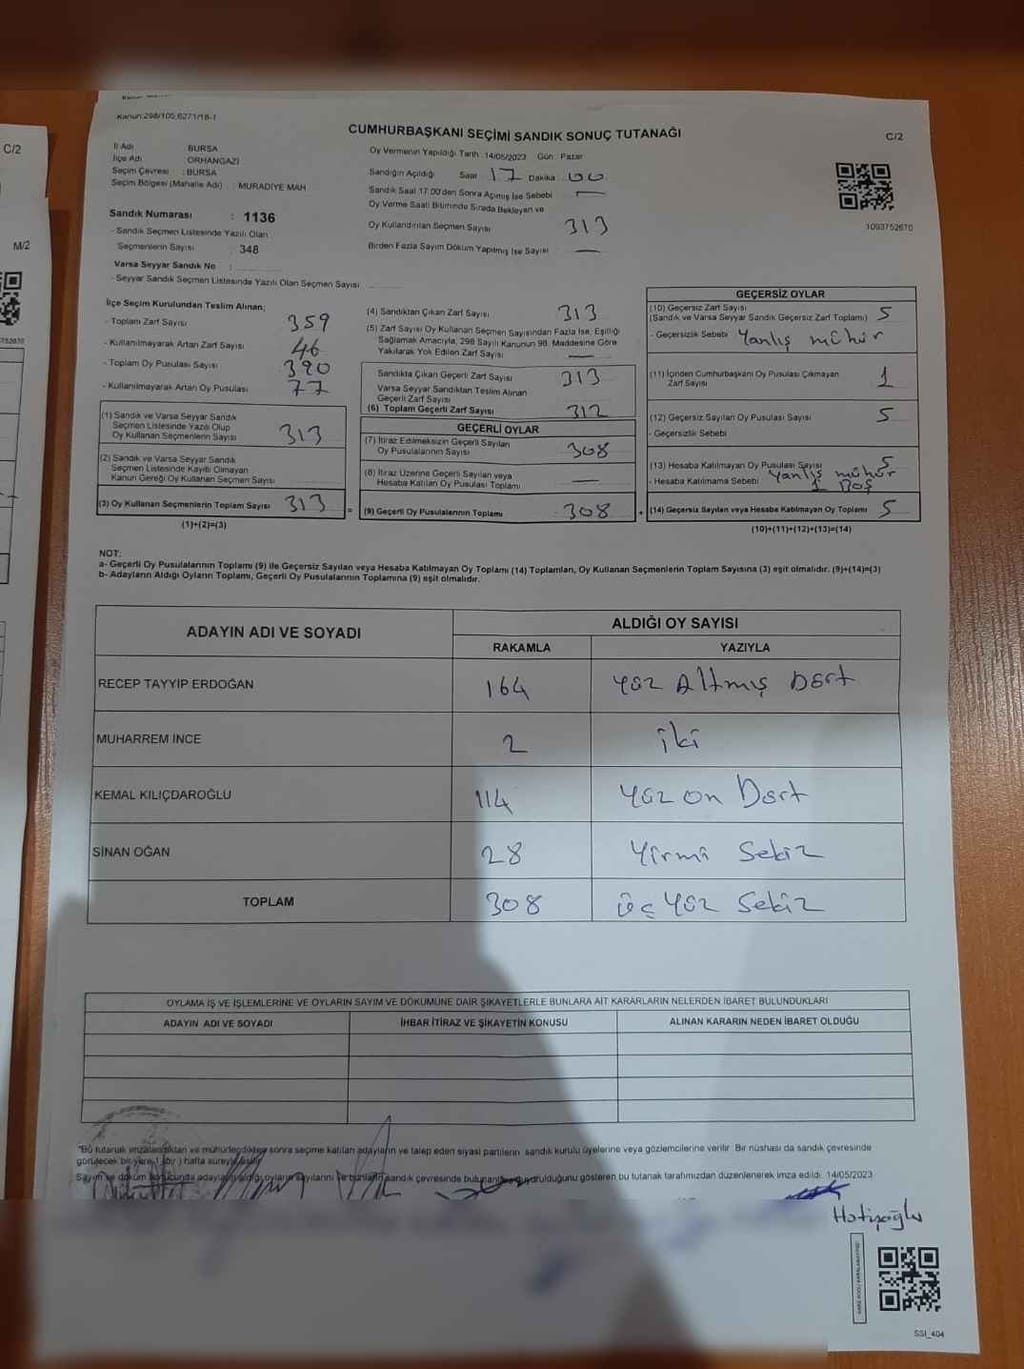 C/2
M/2
Kanun:298/105,6271/18-1
CUMHURBAŞKANI SEÇİMİ SANDIK SONUÇ TUTANAĞI
C/2
İl Adı BURSA
İlçe Adı ORHANGAZİ
Seçim Çevresi : BURSA
Seçim Bölgesi (Mahalle Adı) : MURADİYE MAH
Sandık Numarası : 1136
- Sandık Seçmen Listesinde Yazılı Olan
Seçmenlerin Sayısı : 348
Varsa Seyyar Sandık No :
- Seyyar Sandık Seçmen Listesinde Yazılı Olan Seçmen Sayısı
Oy Vermenin Yapıldığı Tarih :14/05/2023 Gün : Pazar
Sandığın Açıldığı Saat 17 Dakika 00
Sandık Saat 17:00'den Sonra Açılmış İse Sebebi —
Oy Verme Saati Bitiminde Sırada Bekleyen ve
Oy Kullandırılan Seçmen Sayısı 313
Birden Fazla Sayım Döküm Yapılmış İse Sayısı —
1093752670
İlçe Seçim Kurulundan Teslim Alınan;
- Toplam Zarf Sayısı 359
- Kullanılmayarak Artan Zarf Sayısı 46
- Toplam Oy Pusulası Sayısı 390
- Kullanılmayarak Artan Oy Pusulası 77
(1) Sandık ve Varsa Seyyar Sandık
Seçmen Listesinde Yazılı Olup
Oy Kullanan Seçmenlerin Sayısı 313
(2) Sandık ve Varsa Seyyar Sandık
Seçmen Listesinde Kayıtlı Olmayan
Kanun Gereği Oy Kullanan Seçmen Sayısı
(3) Oy Kullanan Seçmenlerin Toplam Sayısı 313
(1)+(2)=(3)
(4) Sandıktan Çıkan Zarf Sayısı 313
(5) Zarf Sayısı Oy Kullanan Seçmen Sayısından Fazla İse, Eşitliği
Sağlamak Amacıyla, 298 Sayılı Kanunun 98. Maddesine Göre
Yakılarak Yok Edilen Zarf Sayısı —
Sandıkta Çıkan Geçerli Zarf Sayısı 313
Varsa Seyyar Sandıktan Teslim Alınan
Geçerli Zarf Sayısı
(6) Toplam Geçerli Zarf Sayısı 312
GEÇERLİ OYLAR
(7) İtiraz Edilmeksizin Geçerli Sayılan
Oy Pusulalarının Sayısı 308
(8) İtiraz Üzerine Geçerli Sayılan veya
Hesaba Katılan Oy Pusulası Toplamı —
= (9) Geçerli Oy Pusulalarının Toplamı 308 +
GEÇERSİZ OYLAR
(10) Geçersiz Zarf Sayısı
(Sandık ve Varsa Seyyar Sandık Geçersiz Zarf Toplamı) 5
- Geçersizlik Sebebi Yanlış mühür
(11) İçinden Cumhurbaşkanı Oy Pusulası Çıkmayan
Zarf Sayısı 1
(12) Geçersiz Sayılan Oy Pusulası Sayısı 5
- Geçersizlik Sebebi
(13) Hesaba Katılmayan Oy Pusulası Sayısı 5
- Hesaba Katılmama Sebebi Yanlış mühür
1 Boş
(14) Geçersiz Sayılan veya Hesaba Katılmayan Oy Toplamı 5
(10)+(11)+(12)+(13)=(14)
NOT:
a- Geçerli Oy Pusulalarının Toplamı (9) ile Geçersiz Sayılan veya Hesaba Katılmayan Oy Toplamı (14) Toplamları, Oy Kullanan Seçmenlerin Toplam Sayısına (3) eşit olmalıdır. (9)+(14)=(3)
b- Adayların Aldığı Oyların Toplamı, Geçerli Oy Pusulalarının Toplamına (9) eşit olmalıdır.
ADAYIN ADI VE SOYADI ALDIĞI OY SAYISI
RAKAMLA YAZIYLA
RECEP TAYYİP ERDOĞAN 164 Yüz Altmış Dört
MUHARREM İNCE 2 iki
KEMAL KILIÇDAROĞLU 114 Yüz on Dört
SİNAN OĞAN 28 Yirmi Sekiz
TOPLAM 308 üç Yüz Sekiz
OYLAMA İŞ VE İŞLEMLERİNE VE OYLARIN SAYIM VE DÖKÜMÜNE DAİR ŞİKAYETLERLE BUNLARA AİT KARARLARIN NELERDEN İBARET BULUNDUKLARI
ADAYIN ADI VE SOYADI İHBAR İTİRAZ VE ŞİKAYETİN KONUSU ALINAN KARARIN NEDEN İBARET OLDUĞU
"Bu tutanak imzalandıktan ve mühürlendikten sonra seçime katılan adayların ve talep eden siyasi partilerin sandık kurulu üyelerine veya gözlemcilerine verilir. Bir nüshası da sandık çevresinde
görülecek bir yere 1 (bir) hafta süreyle asılır
Sayım ve döküm sonucunda adayların aldığı oyların sayılarını ve bunların sandık çevresinde bulunanlara duyurulduğunu gösteren bu tutanak tarafımızdan düzenlenerek imza edildi. 14/05/2023
Hatipoğlu
SSİ_404